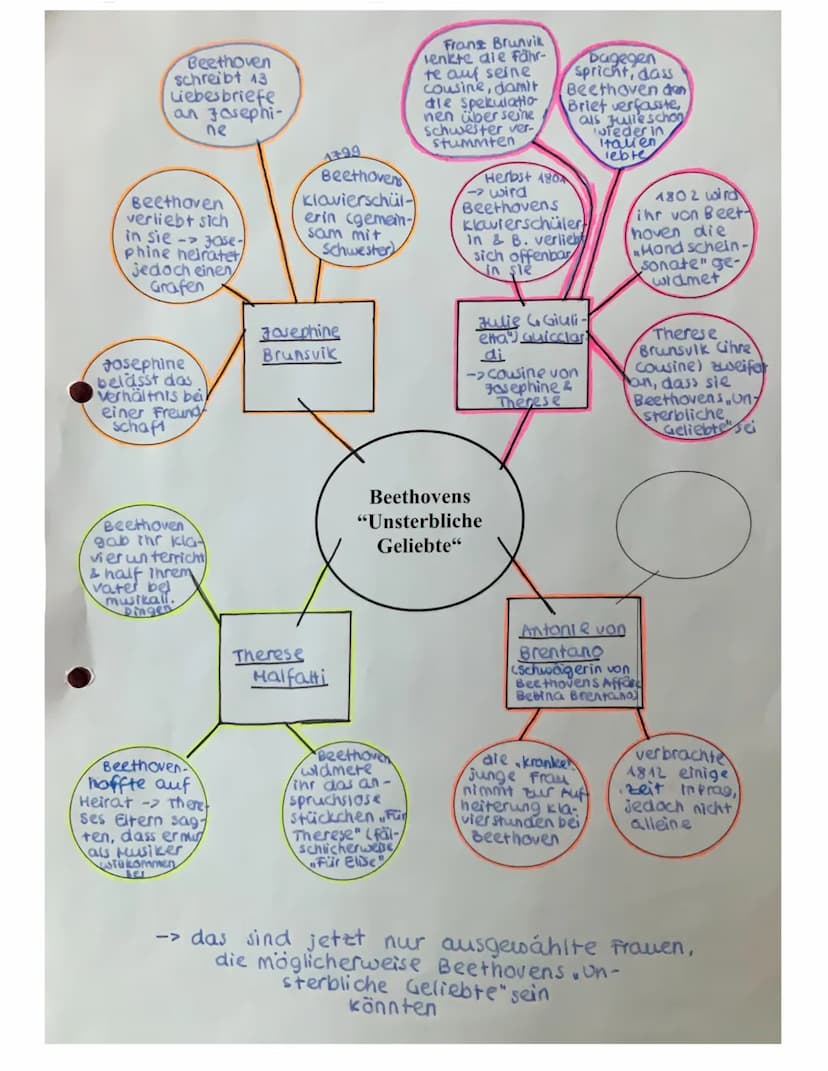 Beethoven
schreibt 13
Liebesbriefe
an Josephi-
ne
Beethoven
verliebt sich
in sie -> Jose-
phine heiratet
jedoch einen
Grafen
1799
Beethovens
Klavierschül-
erin (gemein-
sam mit
Schwester)
Josephine
belässt das
Verhältnis bei
einer Freund-
schaft
Josephine
Brunsvik
Franz Brunvik
lenkte die Fähr-
te auf seine
Cousine, damit
die Spekulatio-
nen über seine
Schwester ver-
stummten
Dagegen
spricht, dass
Beethoven den
Brief verfasste,
als Julie schon
wieder in
Italien
lebte
Herbst 1801
-> wird
Beethovens
Klavierschüler-
in & B. verliebt
sich offenbar
in sie
1802 wird
ihr von Beet-
hoven die
„Mondschein-
sonate" ge-
widmet
Therese
Brunsvik (ihre
Cousine) zweifelt
an, dass sie
Beethovens „Un-
sterbliche
Geliebte" sei
Julie („Giuli-
etta") Guicciar
di
-> Cousine von
Josephine &
Therese
Beethovens
“Unsterbliche
Geliebte“
Beethoven
gab ihr Kla-
vierunterricht
& half ihrem
Vater bei
musikal.
Dingen
Therese
Malfatti
Beethoven
hoffte auf
Heirat -> There-
ses Eltern sag-
ten, dass er nur
als Musiker
willkommen
sei
Beethoven
widmete
ihr das an-
spruchslose
Stückchen „Für
Therese" (fäl-
schlicherweise
„Für Elise"
Antonie von
Brentano
(Schwägerin von
Beethovens Affäre
Bettina Brentano)
die „kranke"
junge Frau
nimmt zur Auf-
heiterung Kla-
vierstunden bei
Beethoven
verbrachte
1812 einige
Zeit in Prag,
jedoch nicht
alleine
-> das sind jetzt nur ausgewählte Frauen,
die möglicherweise Beethovens „Un-
sterbliche Geliebte" sein
könnten